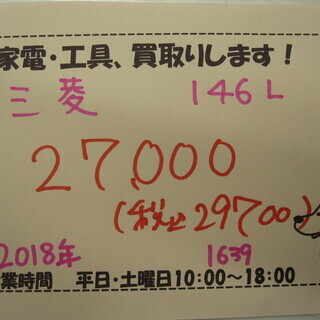 家電・工具、買取りします!
三菱 146L
27,000
(税込29700)
2018年 1639
業時間 平日・土曜日10:00〜18:00